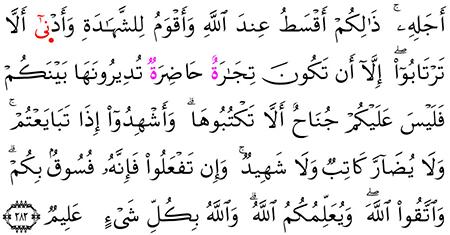 أَجَلِهِۦۚ ذَٰلِكُمْ أَقْسَطُ عِندَ ٱللَّهِ وَأَقْوَمُ لِلشَّهَٰدَةِ وَأَدْنَىٰٓ أَلَّا
تَرْتَابُوٓا۟ۖ إِلَّآ أَن تَكُونَ تِجَٰرَةٌ حَاضِرَةٌ تُدِيرُونَهَا بَيْنَكُمْ
فَلَيْسَ عَلَيْكُمْ جُنَاحٌ أَلَّا تَكْتُبُوهَاۗ وَأَشْهِدُوٓا۟ إِذَا تَبَايَعْتُمْۚ
وَلَا يُضَآرَّ كَاتِبٌ وَلَا شَهِيدٌۚ وَإِن تَفْعَلُوا۟ فَإِنَّهُۥ فُسُوقٌۢ بِكُمْۗ
وَٱتَّقُوا۟ ٱللَّهَۖ وَيُعَلِّمُكُمُ ٱللَّهُۗ وَٱللَّهُ بِكُلِّ شَىْءٍ عَلِيمٌ